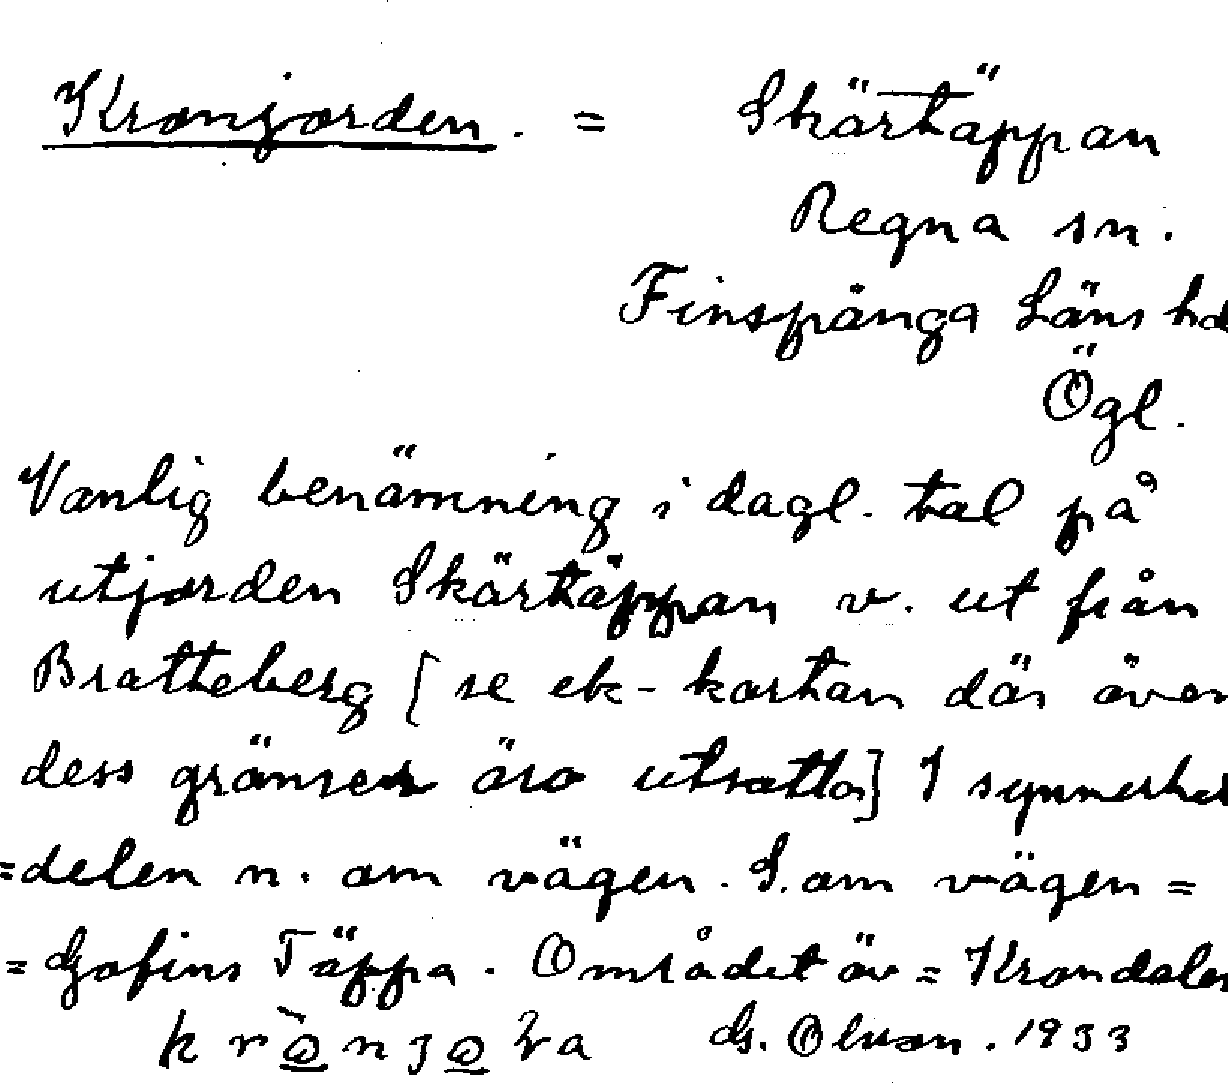 Kronjorden. = Skärtäppan
Regna sn.
Finspånga Läns hd
Ögl.
Vanlig benämning i dagl. tal på
utjorden Skärtäppan v. ut från
Bratteberg [se ek-kartan där även
dess gränser äro utsatta] I synnerhet
=delen n. om vägen. S. om vägen =
= Gofins Täppa. Området äv = Krondalen
G. Olsson. 1933